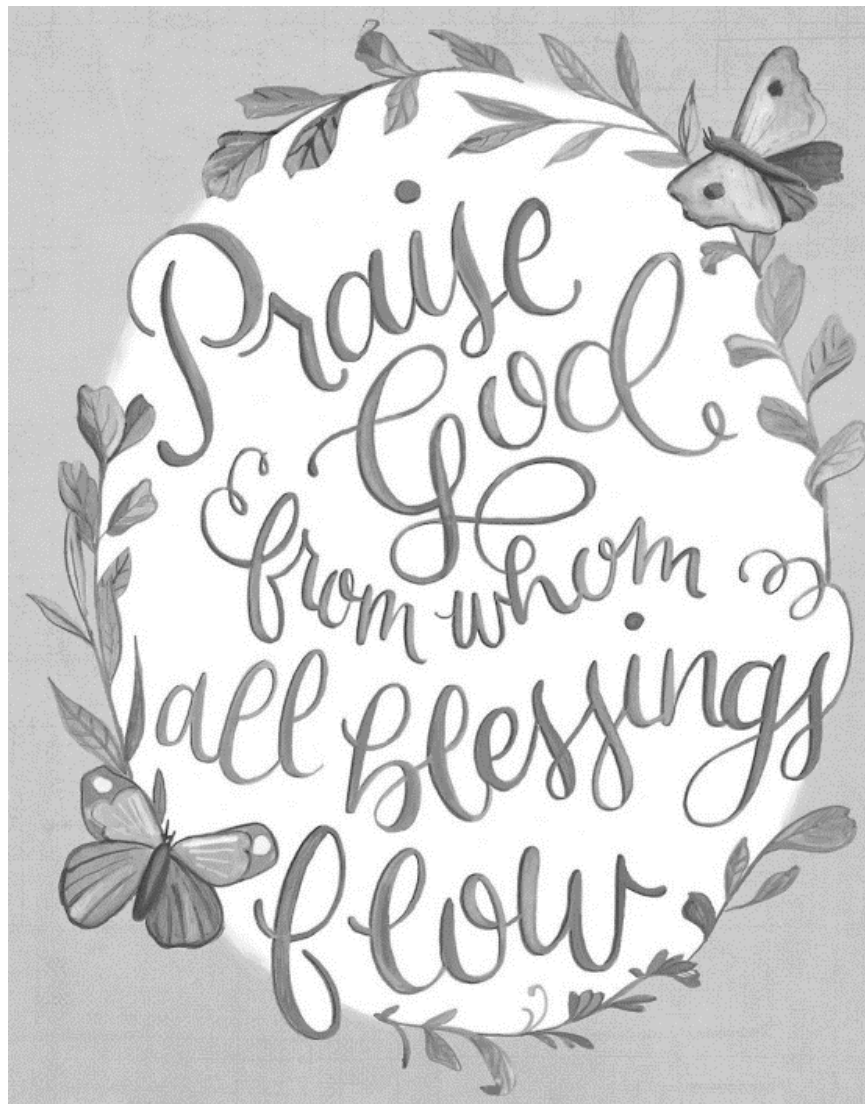 Praise
God
from whom
all blessings
flow